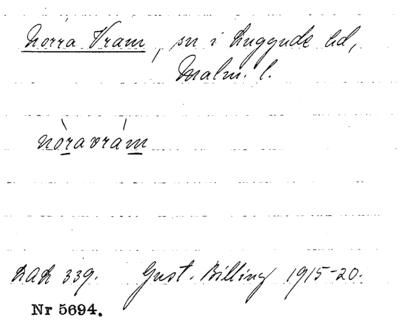 Norra Vram, sn i Luggude hd,
Malm. l.
nòravrám
LAL 339. Gust. Billing 1915-20.
Nr 5694.